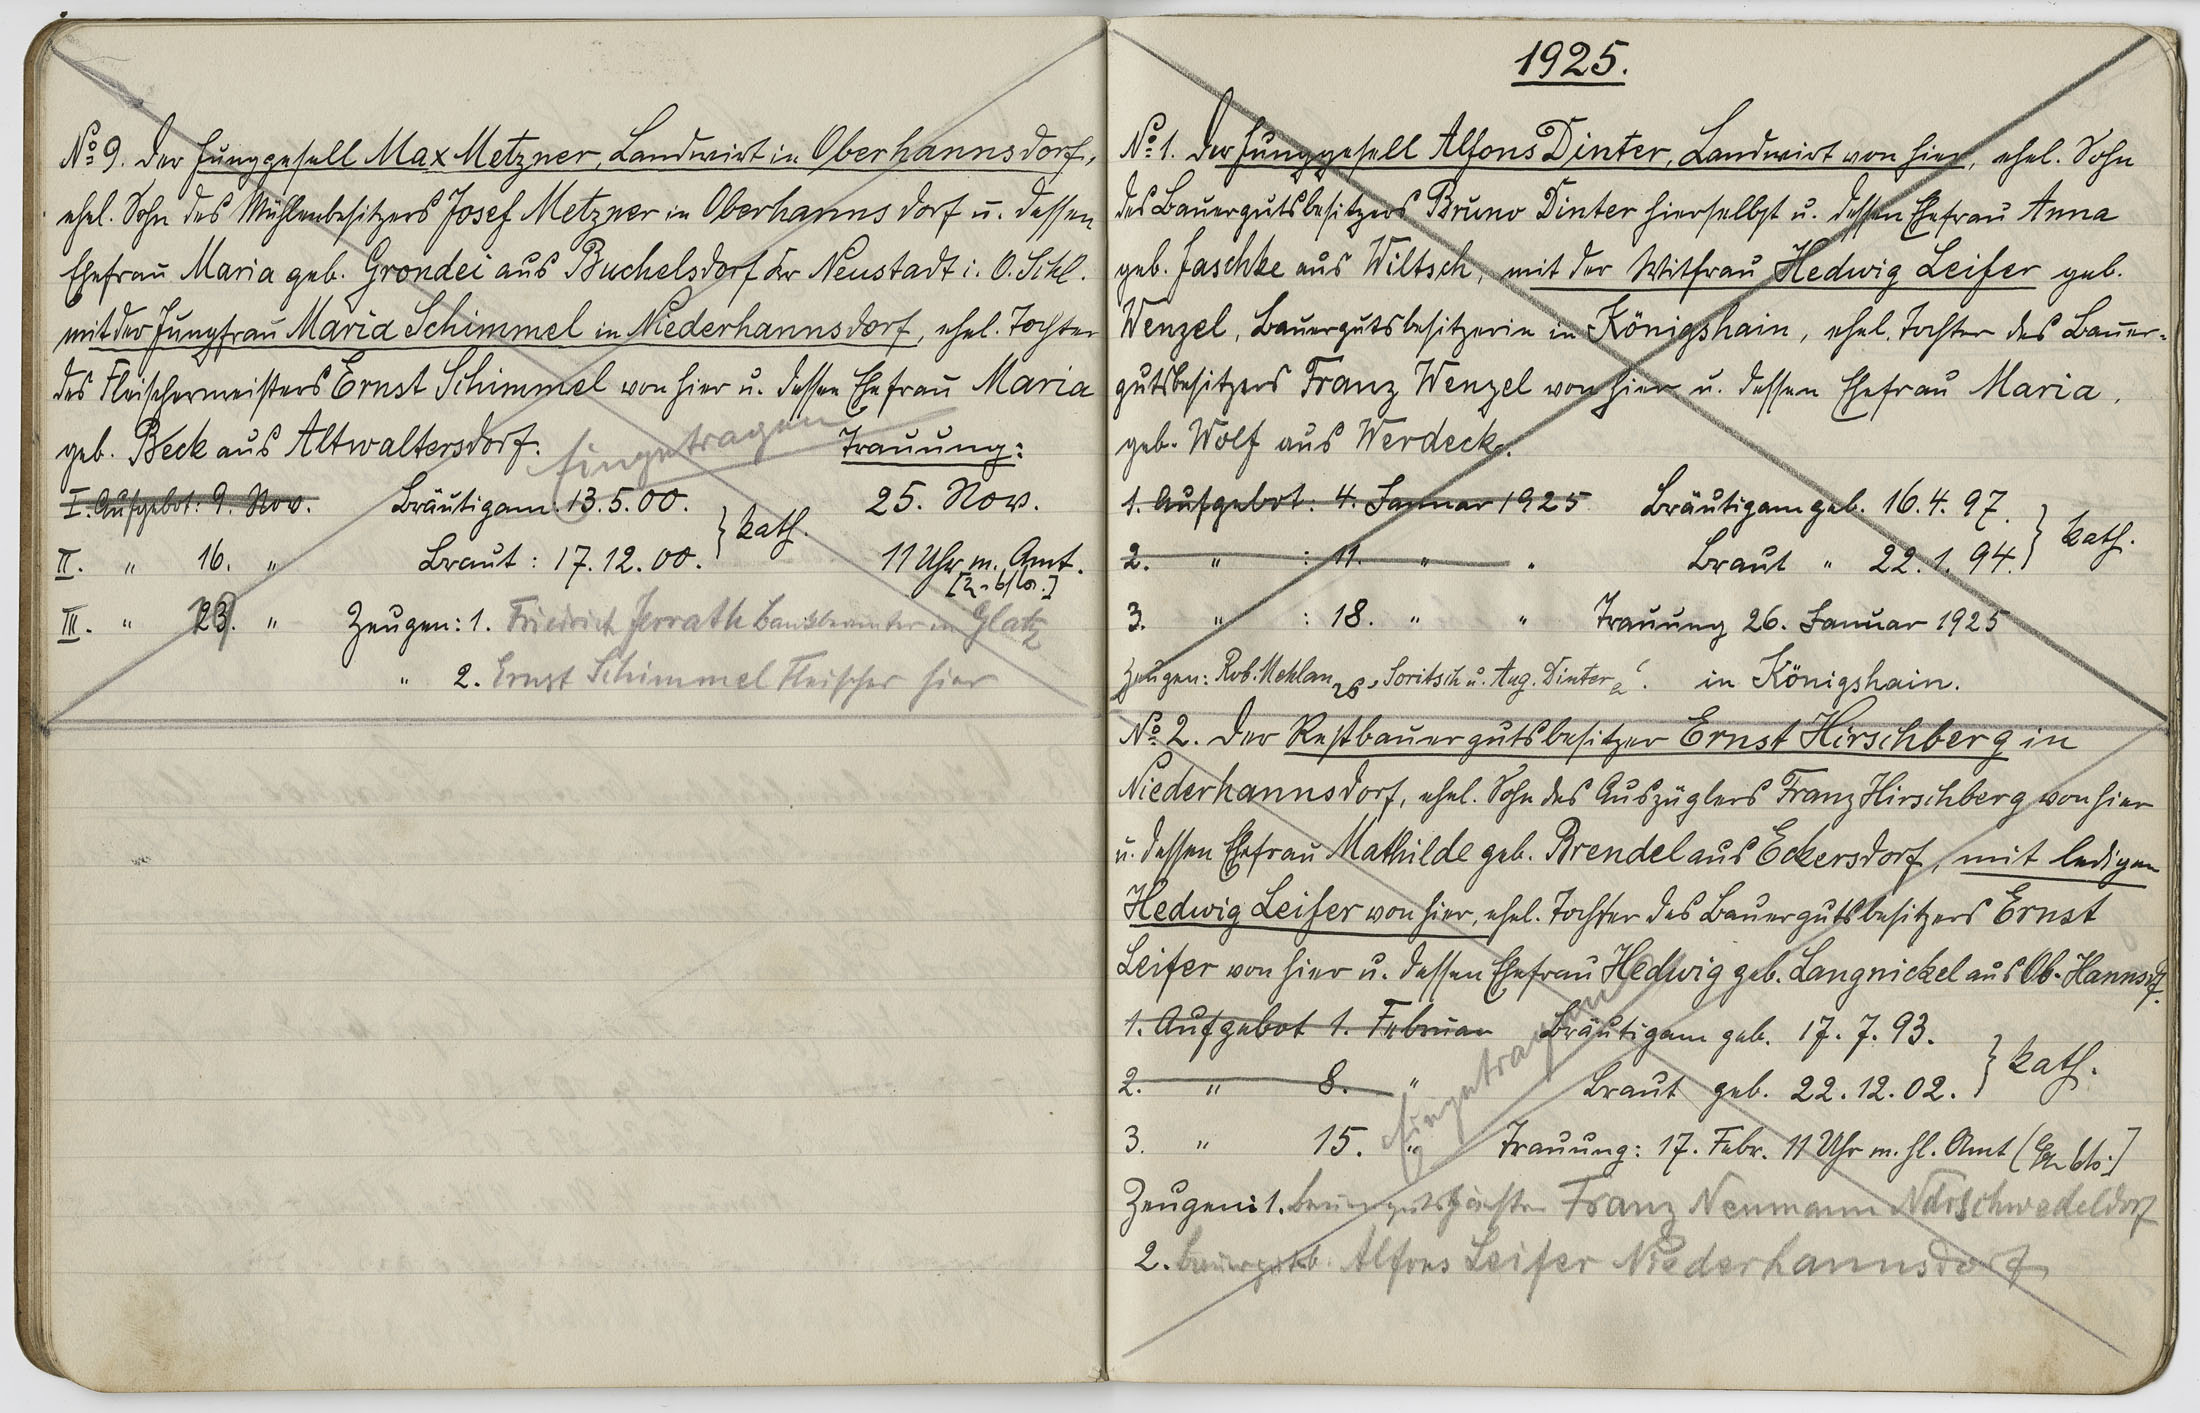 No 9. Der Junggesell Max Metzner, Landwirt in Oberhannsdorf,
ehel. Sohn des Mühlenbesitzers Josef Metzner in Oberhannsdorf u. dessen
Ehefrau Maria geb. Grondei aus Buchelsdorf Kr Neustadt i. O. Schl.
mit der Jungfrau Maria Schimmel in Niederhannsdorf, ehel. Tochter
des Fleischermeisters Ernst Schimmel von hier u. dessen Ehefrau Maria
geb. Beck aus Altwaltersdorf. Eingetragen Trauung:
I. Aufgebot: 9. Nov. Bräutigam: 13.5.00. } kath. 25. Nov.
II. " 16. " Braut: 17.12.00. 11 Uhr m. Amt.
III. " 23. " Zeugen: 1. Friedrich Jerrath Bankbeamter in Glatz
" 2. Ernst Schimmel Fleischer hier
1925.
No 1. Der Junggesell Alfons Dinter, Landwirt von hier, ehel. Sohn
des Bauergutsbesitzers Bruno Dinter hierselbst u. dessen Ehefrau Anna
geb. Jaschke aus Wiltsch, mit der Witfrau Hedwig Leifer geb.
Wenzel, Bauergutsbesitzerin in Königshain, ehel. Tochter des Bauer-
gutsbesitzers Franz Wenzel von hier u. dessen Ehefrau Maria,
geb. Wolf aus Werdeck.
1. Aufgebot: 4. Januar 1925 Bräutigam geb. 16.4.97. } kath.
2. " : 11. " " Braut " 22.1.94.
3. " : 18. " " Trauung 26. Januar 1925
Zeugen: Rob. Mehlan, Soritsch u. Aug. Dinter in Königshain.
No 2. Der Restbauergutsbesitzer Ernst Hirschberg in
Niederhannsdorf, ehel. Sohn des Auszüglers Franz Hirschberg von hier
u. dessen Ehefrau Mathilde geb. Brendel aus Eckersdorf, mit ledigen
Hedwig Leifer von hier, ehel. Tochter des Bauergutsbesitzers Ernst
Leifer von hier u. dessen Ehefrau Hedwig geb. Langnickel aus Ob.-Hannsdf.
1. Aufgebot 1. Februar Bräutigam geb. 17.7.93. } kath.
2. " 8. " Braut geb. 22.12.02.
3. " 15. " Eingetragen Trauung: 17. Febr. 11 Uhr m. hl. Amt
Zeugen: 1. Franz Neumann Ndrschwedeldorf
2. Bauergutsb. Alfons Leifer Niederhannsdorf